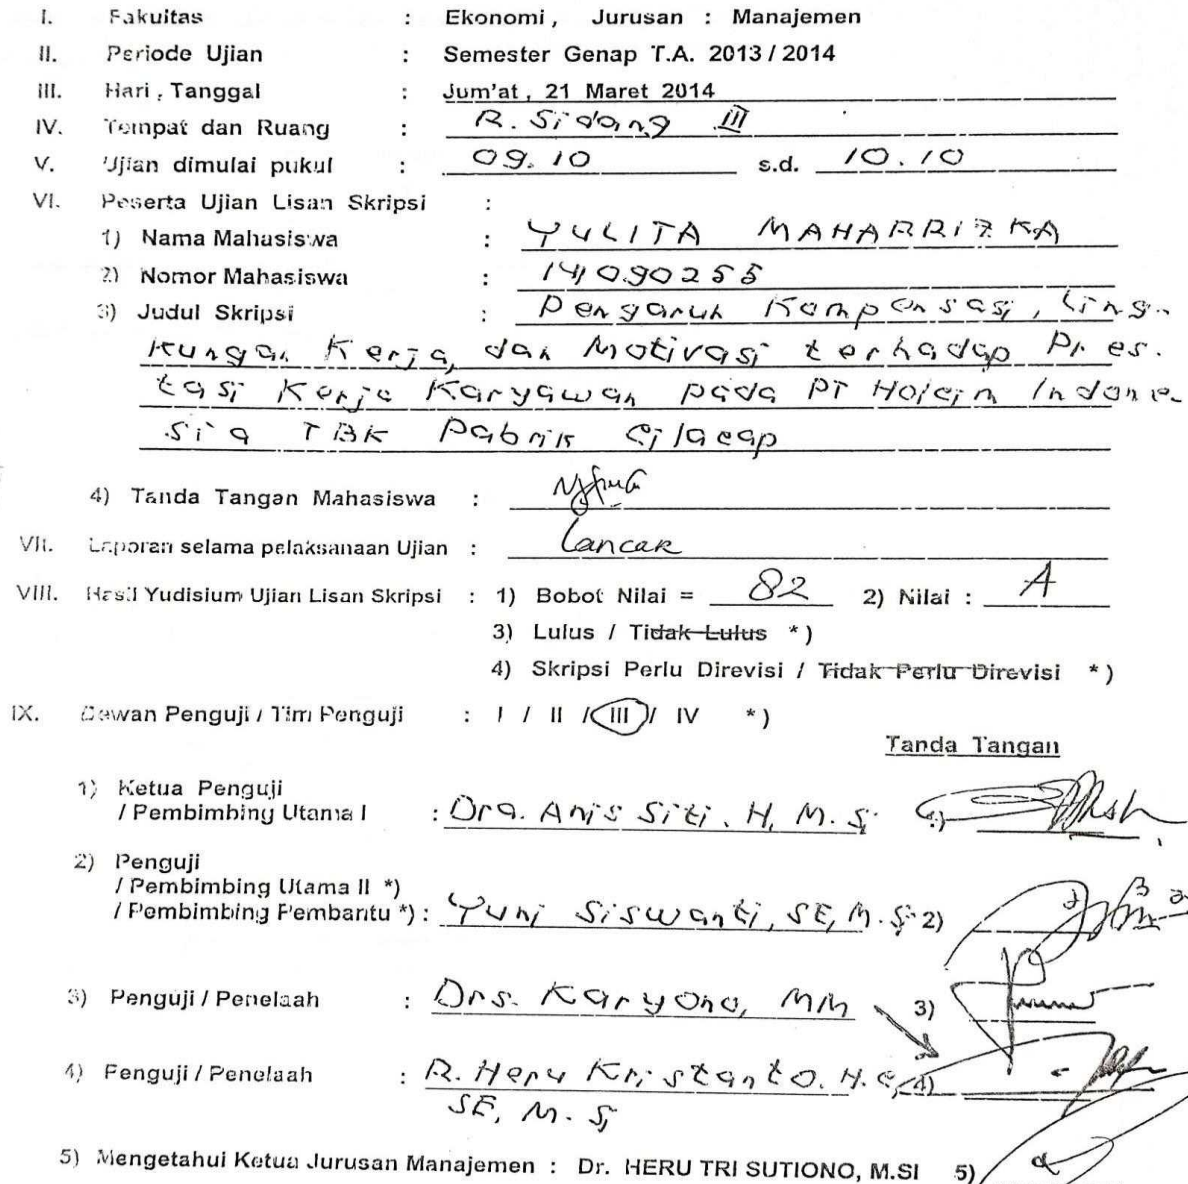 I. Fakultas : Ekonomi, Jurusan : Manajemen
II. Periode Ujian : Semester Genap T.A. 2013 / 2014
III. Hari, Tanggal : Jum'at, 21 Maret 2014
IV. Tempat dan Ruang : R. Sidang III
V. Ujian dimulai pukul : 09.10 s.d. 10.10
VI. Peserta Ujian Lisan Skripsi :
1) Nama Mahasiswa : YULITA MAHARRIZKA
2) Nomor Mahasiswa : 141090255
3) Judul Skripsi : Pengaruh Kompensasi, Ling-
kungan Kerja, dan Motivasi terhadap Pres-
tasi Kerja Karyawan pada PT Holcim Indone-
sia TBK Pabrik Cilacap
4) Tanda Tangan Mahasiswa :
VII. Laporan selama pelaksanaan Ujian : Lancar
VIII. Hasil Yudisium Ujian Lisan Skripsi : 1) Bobot Nilai = 82 2) Nilai : A
3) Lulus / Tidak Lulus *)
4) Skripsi Perlu Direvisi / Tidak Perlu Direvisi *)
IX. Dewan Penguji / Tim Penguji : I / II / III / IV *)
Tanda Tangan
1) Ketua Penguji
/ Pembimbing Utama I : Dra. Anis Siti. H, M.Si 1)
2) Penguji
/ Pembimbing Utama II *)
/ Pembimbing Pembantu *) : Yuni Siswanti, SE, M.Si 2)
3) Penguji / Penelaah : Drs. Karyono, MM 3)
4) Penguji / Penelaah : R. Heru Kristanto. H.C, 4)
SE, M.Si
5) Mengetahui Ketua Jurusan Manajemen : Dr. HERU TRI SUTIONO, M.SI 5)